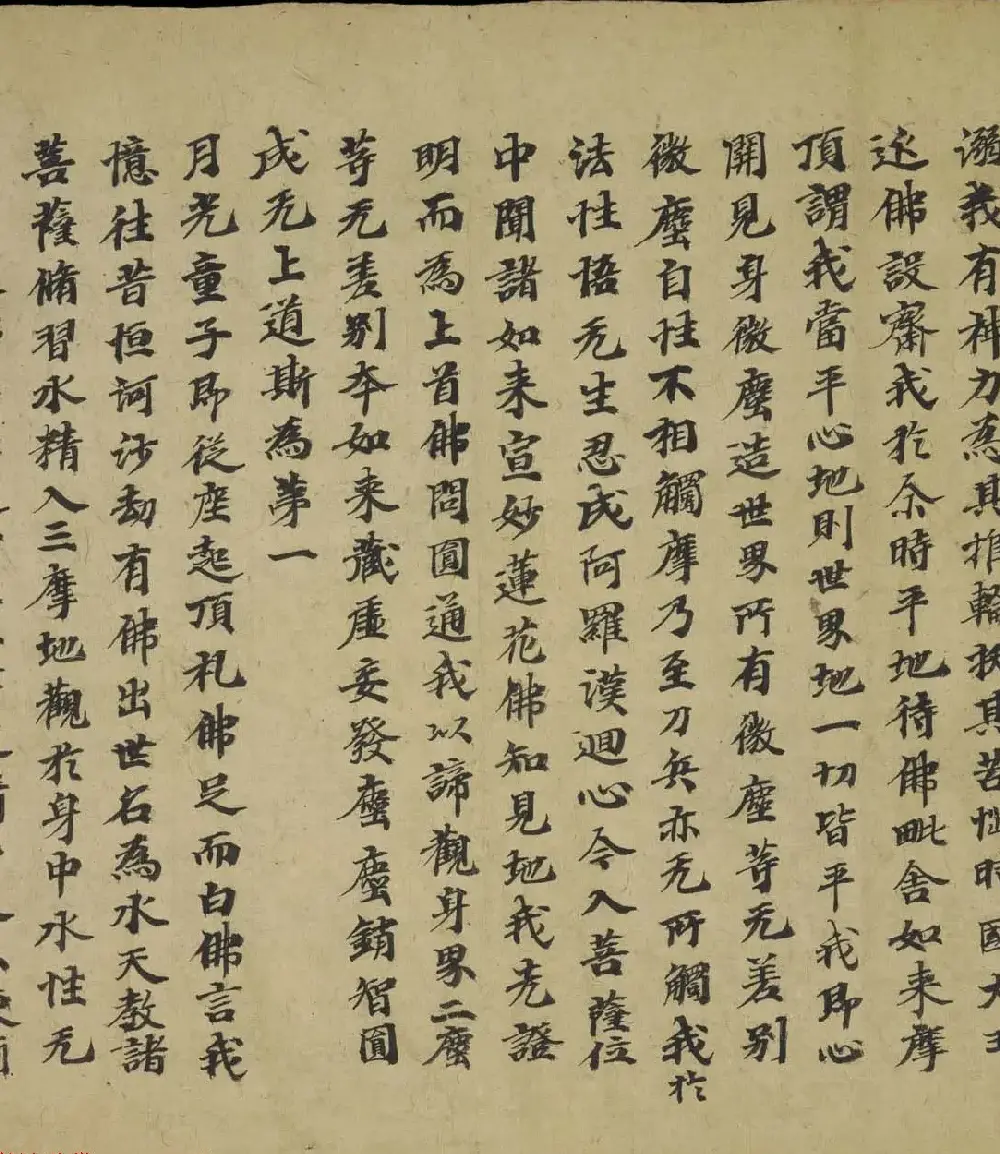 溺我有神力為其推輪拔其苦惱時國大王
延佛設齋我於尒時平地待佛毗舍如来摩
頂謂我當平心地則世界地一切皆平我即心
開見身微塵造世界所有微塵等无差别
微塵自性不相觸摩乃至刀兵亦无所觸我於
法性悟无生忍成阿羅漢迴心今入菩薩位
中聞諸如来宣妙蓮花佛知見地我先證
明而為上首佛問圓通我以諦觀身界二塵
等无差别本如来藏虛妄發塵塵銷智圓
成无上道斯為第一
月光童子即從座起頂礼佛足而白佛言我
憶往昔恒河沙劫有佛出世名為水天教諸
菩薩脩習水精入三摩地觀於身中水性无